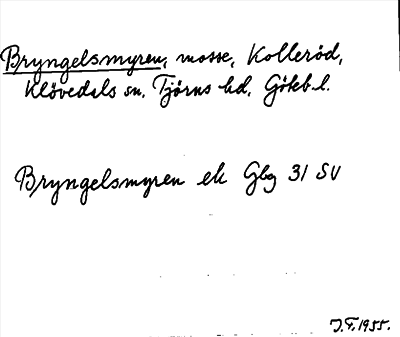 Bryngelsmyren, mosse, Kolleröd,
Klövedals sn, Tjörns hd, Göteb. l.
Bryngelsmyren ek Gbg 31 SV
J.F. 1955.